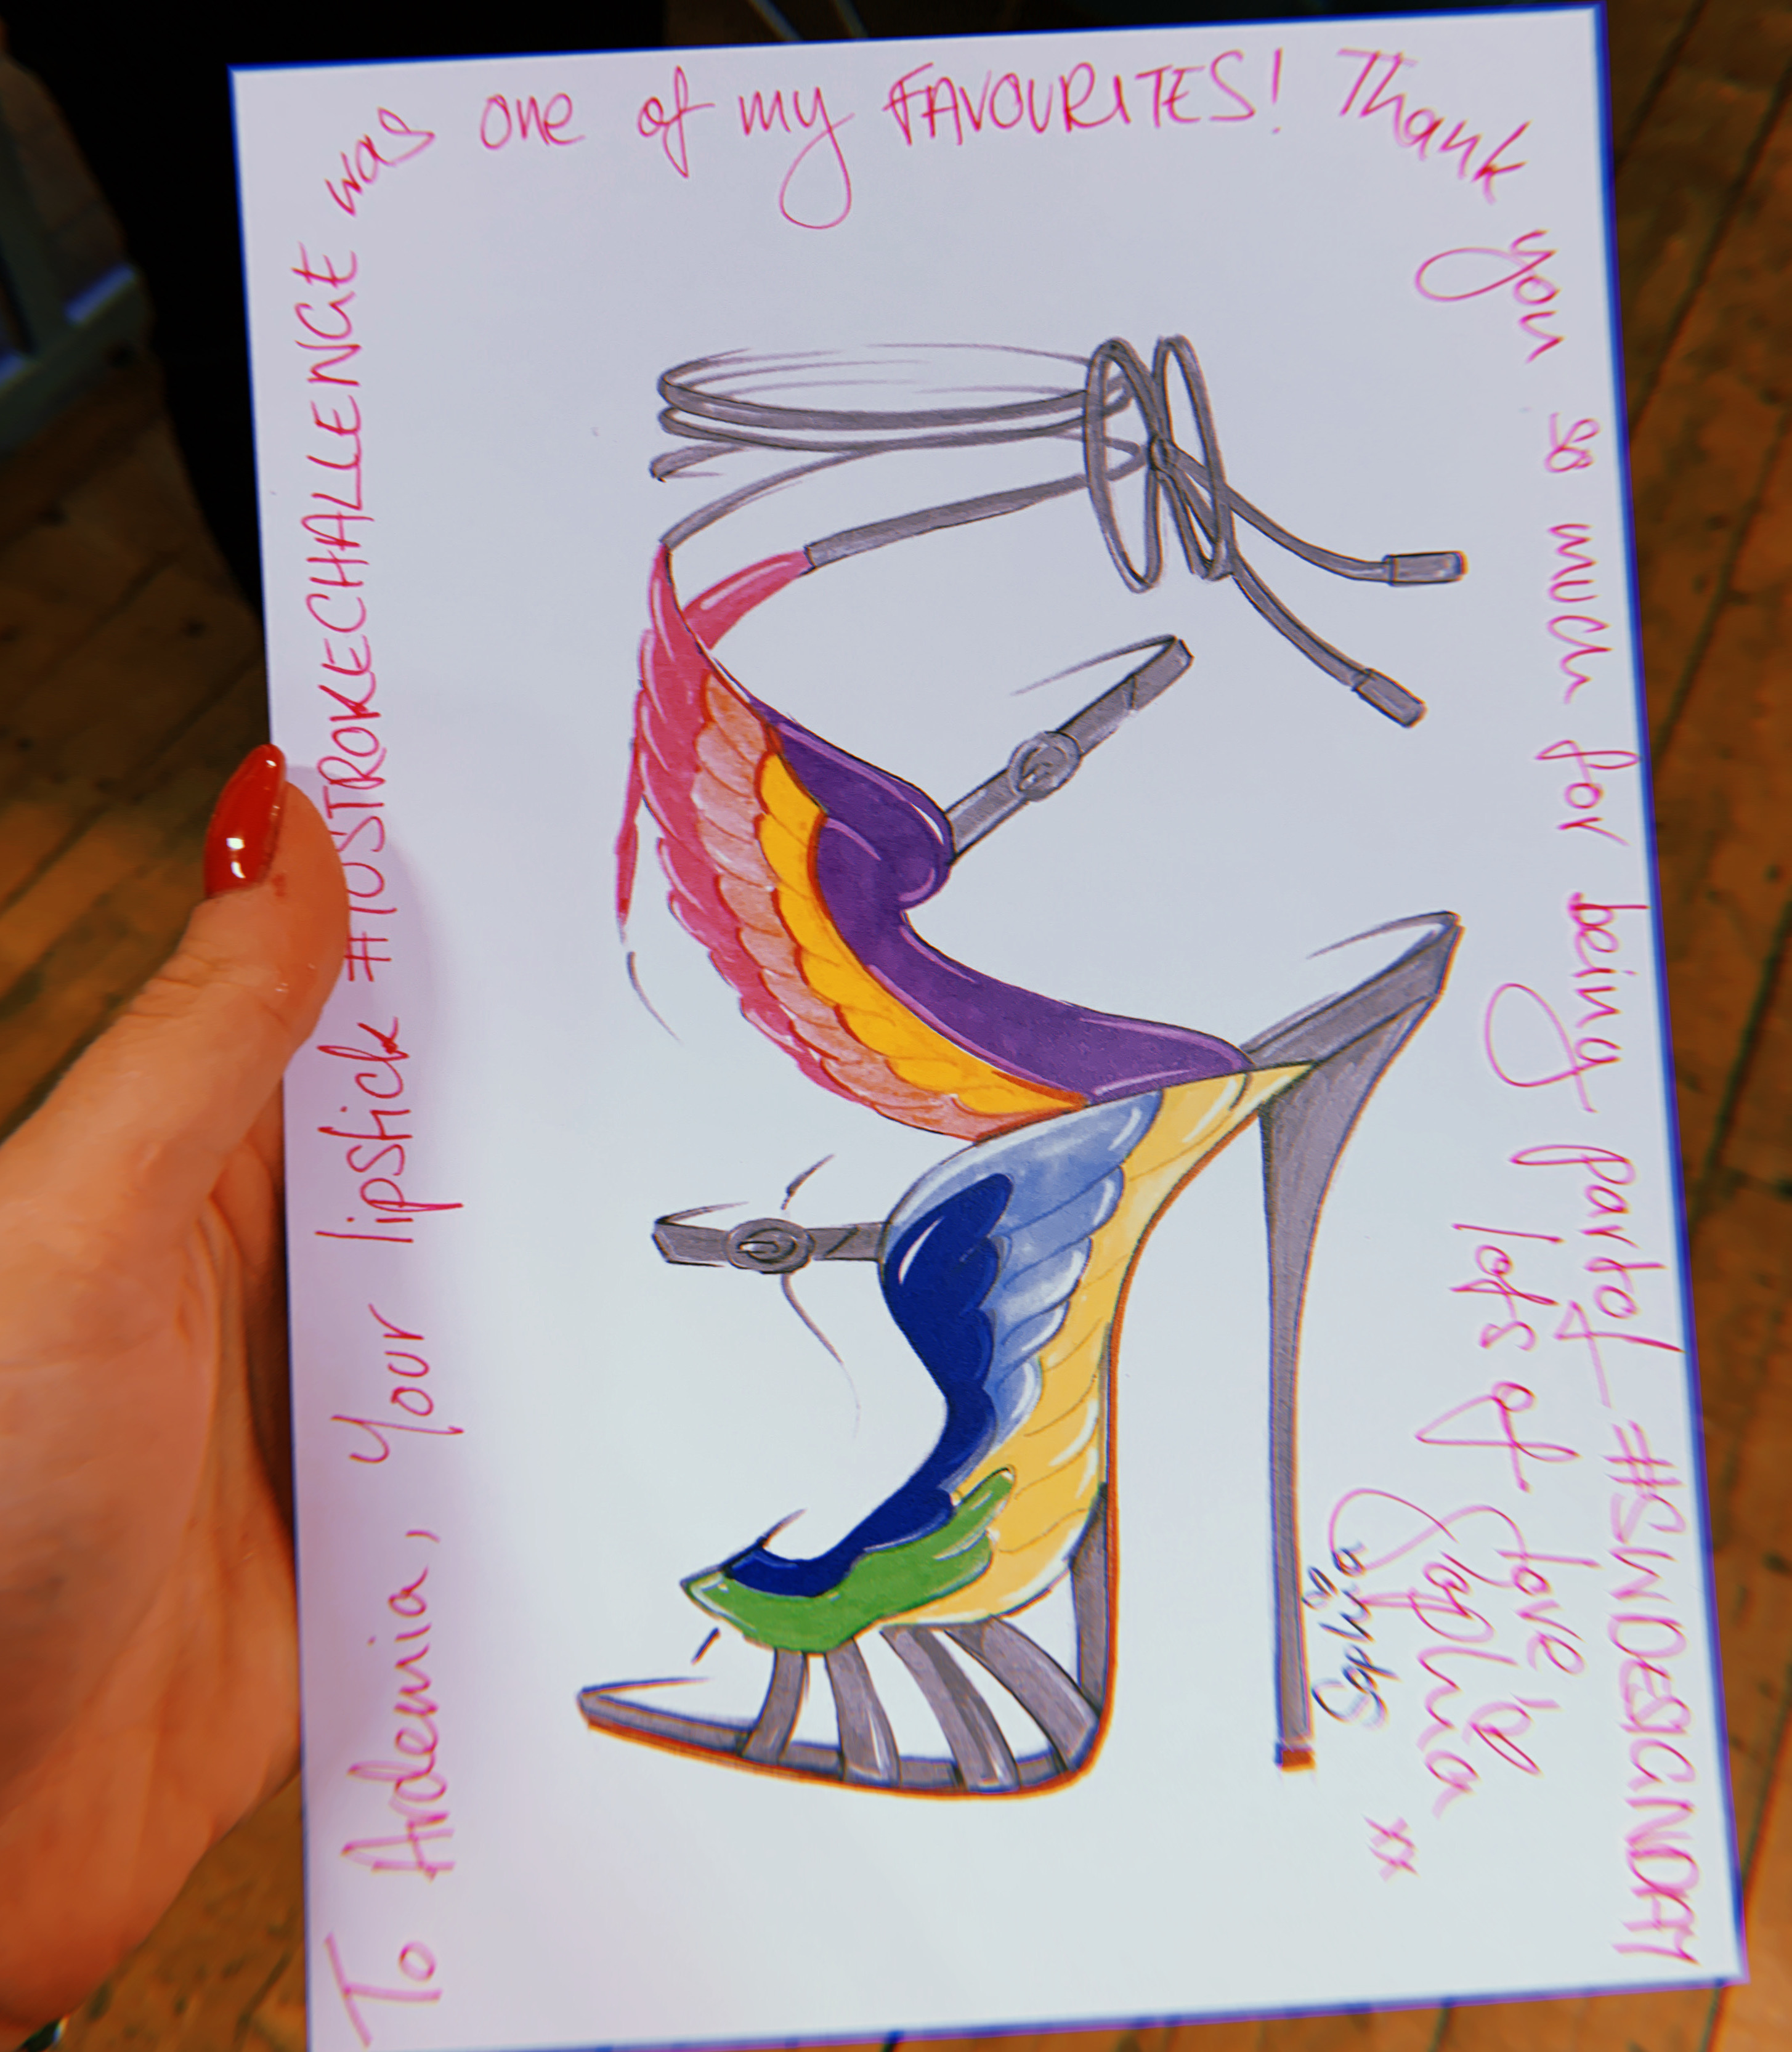 To Ardemia, your lipstick #10STROKECHALLENGE was
one of my FAVOURITES! Thank
you so much for being part of #SWDESIGNDAY
lots of love
Sophia xx
Sophia